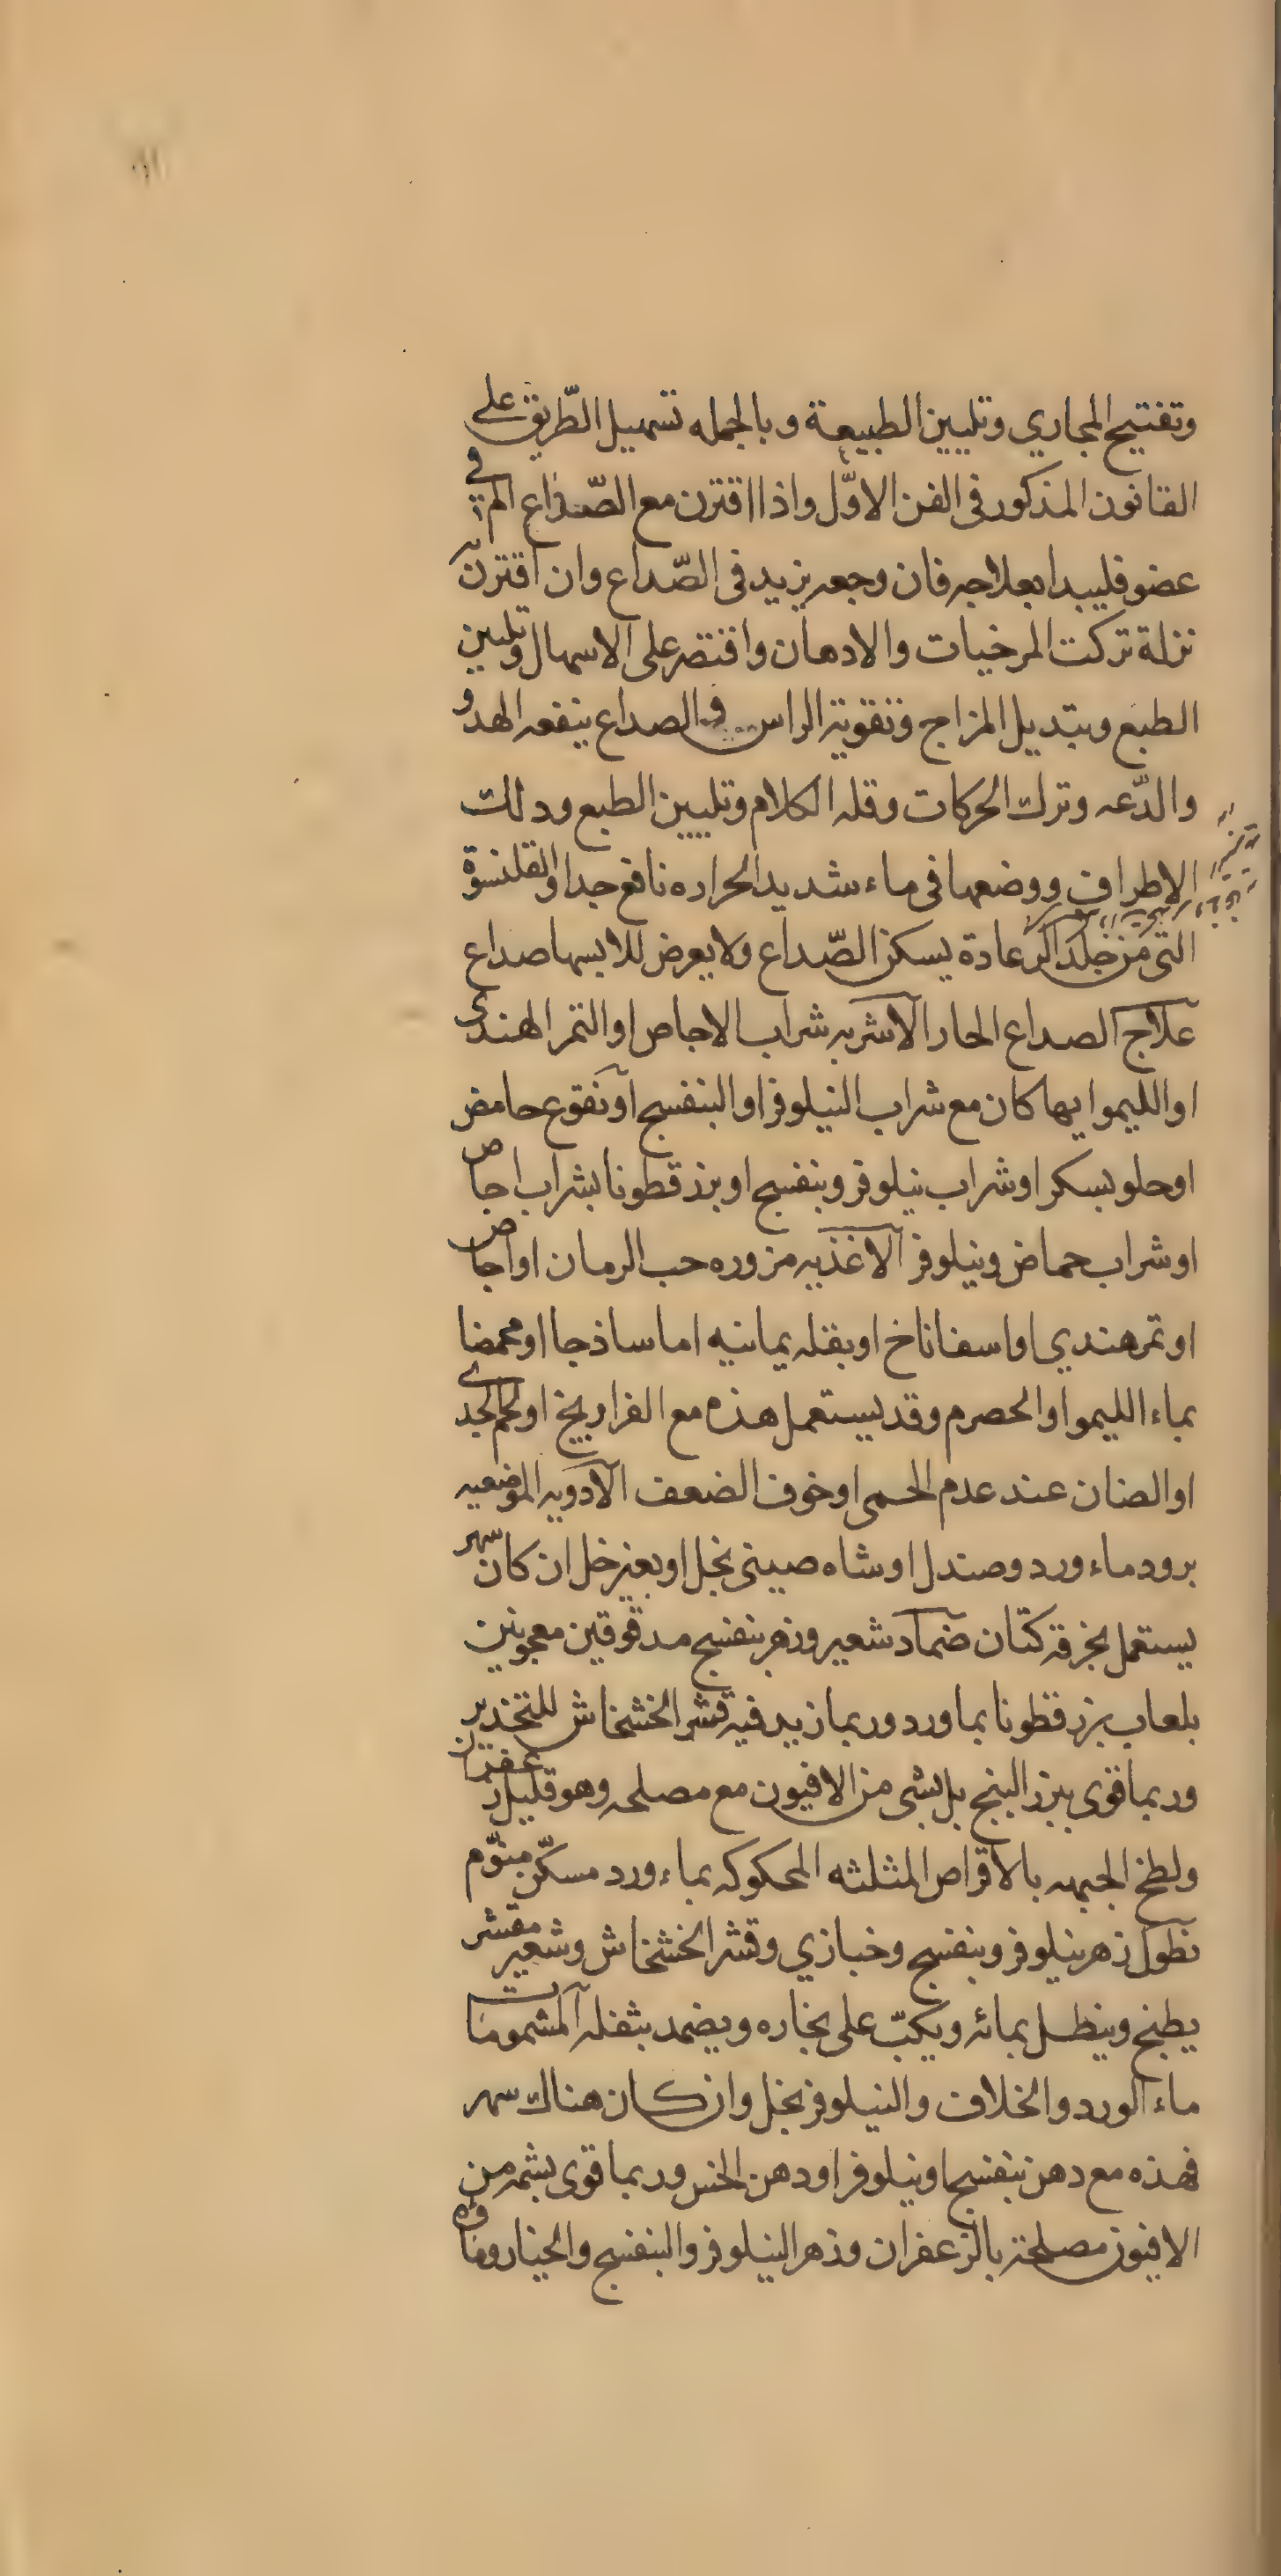 وتفتيح المجاري وتليين الطبيعة وبالجمله تسهيل الطّريق على
القانون المذكور فى الفن الاوّل واذا اقترن مع الصّداع الم في
عضو فليبدا بعلاجه فان وجعه يزيد فى الصّداع وان اقترن به
نزلة تركت المرخيات والادهان واقتصر على الاسهال وتليين
الطبع وبتديل المزاج وتقوية الراس والصداع ينفعه الهدو
والدّعه وترك الحركات وقله الكلام وتليين الطبع ودلك
الاطراف ووضعها فى ماء شديد الحراره نافع جدا والقلنسوة
التى من جلد الرعادة يسكن الصّداع ولا يعرض للابسها صداع
علاج الصداع الحار الاشربه شراب الاجاص او التمر الهندي
او الليمو ايها كان مع شراب النيلوفر او البنفسج او نقوع حامض
او حلو بسكر او شراب نيلوفر وبنفسج او بزر قطونا بشراب اجاص
او شراب حماض ونيلوفر الاغذيه مزوره حب الرمان او اجاص
او تمر هندي او اسفاناخ او بقله يمانيه اما ساذجا او محمضا
بماء الليمو او الحصرم وقد يستعمل هذه مع الفراريج او لحم الجدي
او الضان عند عدم الحمى او خوف الضعف الادويه الموضعيه
برود ماء ورد وصندل او شاه صينى بخل او بغير خل ان كان سهر
يستعمل بخرقه كتان ضماد شعير وزهر بنفسج مدقوقين معجونين
بلعاب بزر قطونا بما ورد وربما زيد فيه قشر الخشخاش للتخدير
وربما قوى ببزر البنج بل بشى من الافيون مع مصلحه وهو قليل زعفران
ولطخ الجبهه بالاقراص المثلثه المحكوكه بماء ورد مسكّن منوّم
نطول زهر نيلوفر وبنفسج وخبازي وقشر الخشخاش وشعير مقشر
يطبخ وينطل بمائه ويكبّ على بخاره ويضمد بثفله المشمومات
ماء الورد والخلاف والنيلوفر بخل وان كان هناك سهر
فهذه مع دهن بنفسج او نيلوفر او دهن الخس وربما قوى بشمه من
الافيون مصلحة بالزعفران وزهر النيلوفر والبنفسج والخيار